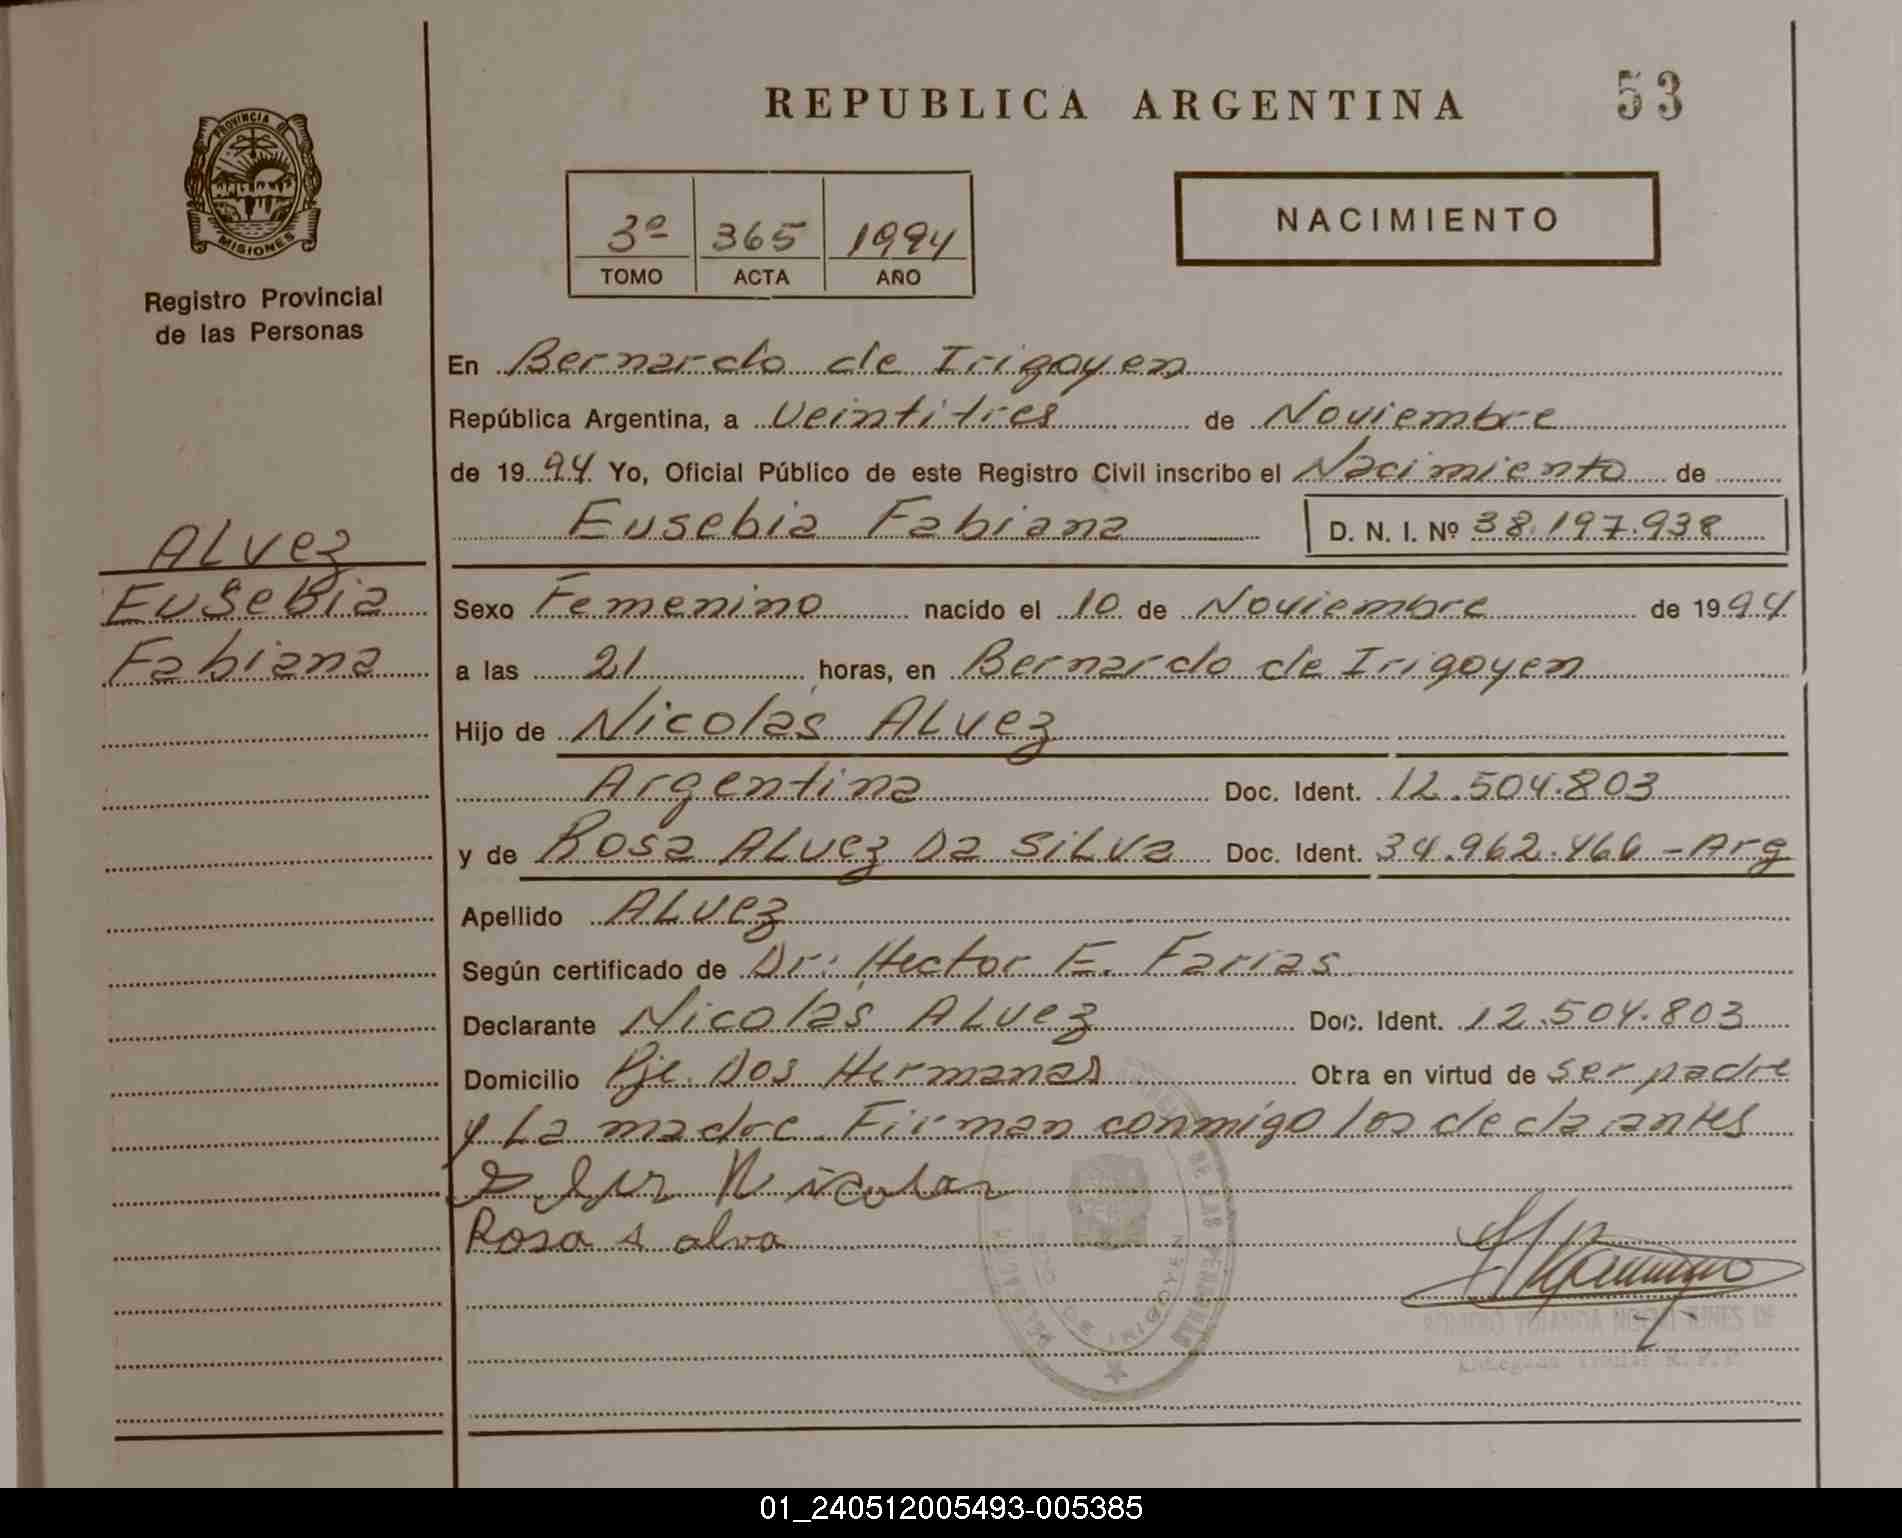 REPUBLICA ARGENTINA
53
PROVINCIA DE
MISIONES
Registro Provincial
de las Personas
3º 365 1994
TOMO ACTA AÑO
NACIMIENTO
En Bernardo de Irigoyen
República Argentina, a Veintitres de Noviembre
de 1994 Yo, Oficial Público de este Registro Civil inscribo el Nacimiento de
Eusebia Fabiana D. N. I. Nº 38.197.938
ALvez
Eusebia
Fabiana
Sexo Femenino nacido el 10 de Noviembre de 1994
a las 21 horas, en Bernardo de Irigoyen
Hijo de Nicolas ALvez
Argentina Doc. Ident. 12.504.803
y de Rosa ALvez Da SiLva Doc. Ident. 34.962.466 - Arg
Apellido ALvez
Según certificado de Dr. Hector E. Farias
Declarante Nicolas ALvez Doc. Ident. 12.504.803
Domicilio Pje. Dos Hermanas Obra en virtud de ser padre
y La madre. Firman conmigo los declarantes
Nicolas
Rosa
DE LAS PERSONAS
DE IRIGOYEN
01_240512005493-005385